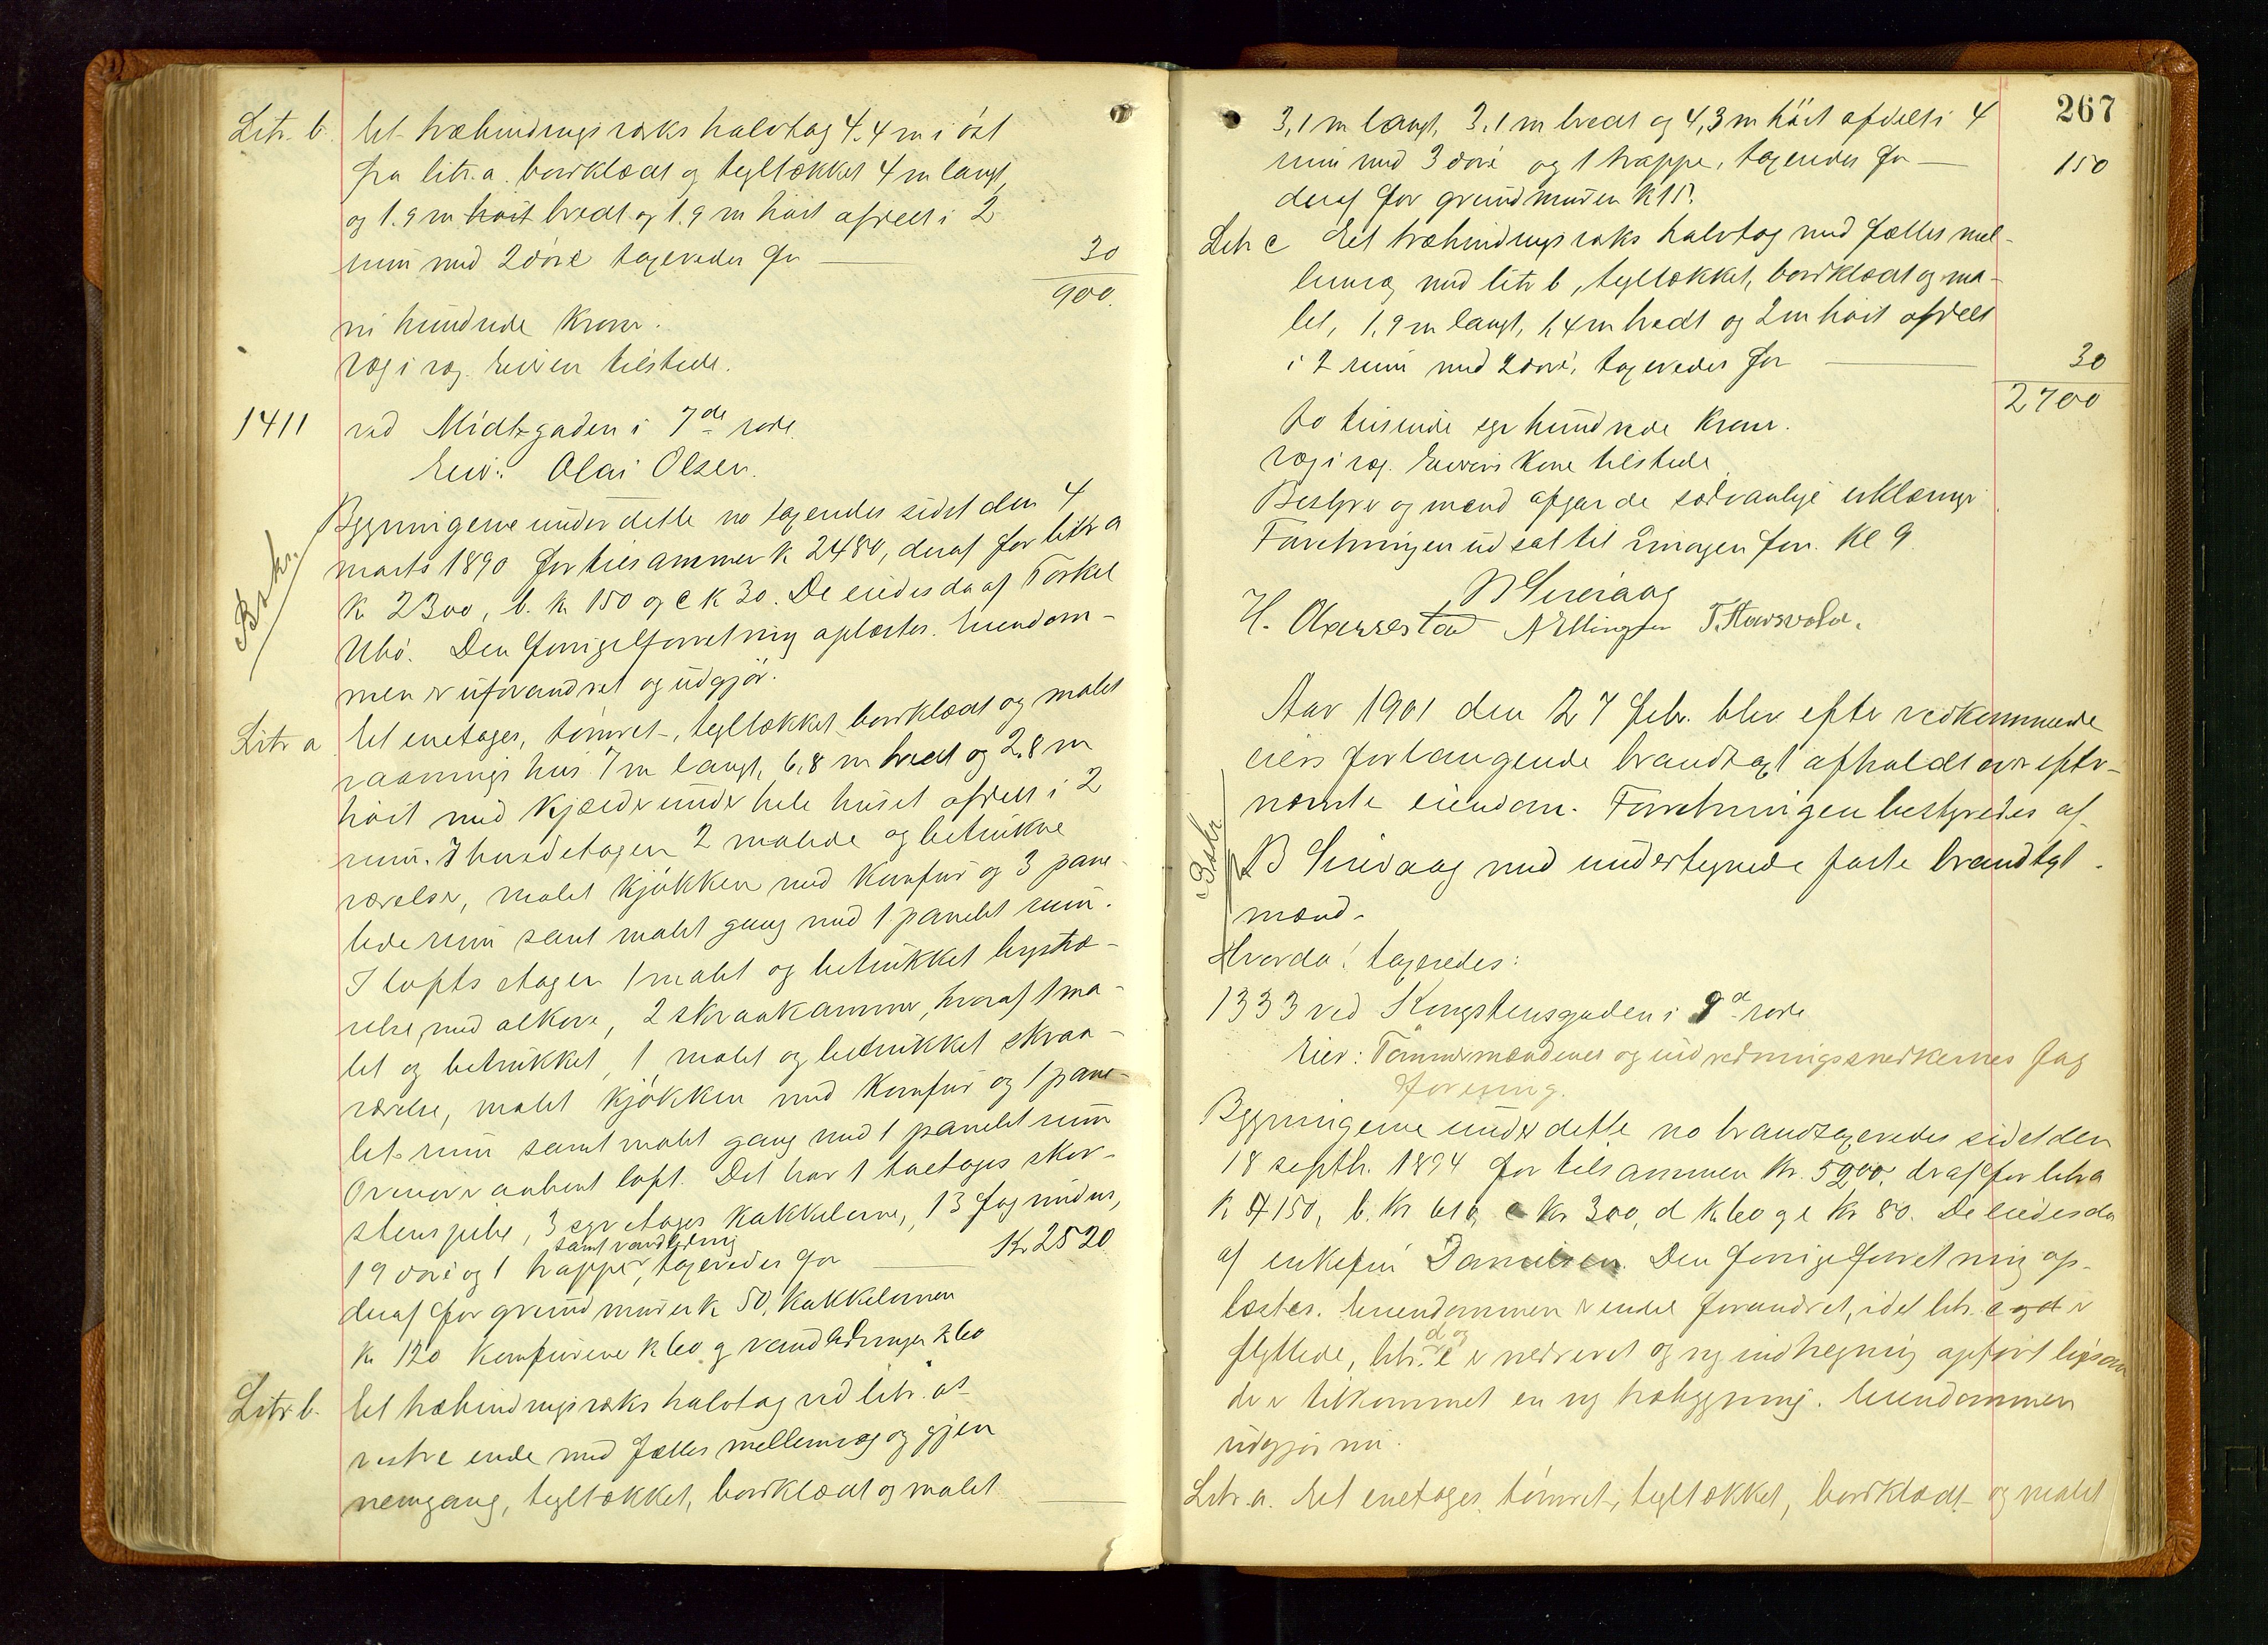 Litr. b. Et træbindingsværks halvtag 4.4 m i öst
fra litr. a. bordklædt og tegltækket 4 m langt,
og 1.9 m höit bredt og 1.9 m höit afdelt i 2
rum med 2 döre taxeredes for 30
900.
ni hundrede kroner.
Væg i væg. Eieren tilstede.
1411 ved Midtgaden i 7de rode.
Eier: Olai Olsen.
Bygningerne under dette no taxeredes sidst den 4
marts 1890 for tilsammen k 2480, deraf for litr a
k 2300, b. k 150 og c k 30. De eiedes da af Torkel
Ubö. Den forrige forretning oplæstes. Eiendom-
men er uforandret og udgjör.
Beskr.
Litr a Et enetages, tömret, tegltækket bordklædt og malet
vaaningshus 7 m langt, 6,8 m bredt og 2,8 m
höit med kjælder under hele huset afdelt i 2
rum. I hovedetagen 2 malede og betrukne
værelser, malet kjökken med komfur og 3 pane-
lede rum samt malet gang med 1 panelet rum.
I loftsetagen 1 malet og betrukket kvistvæ-
relse med alkove, 2 skraakammer, hvoraf 1 ma-
let og betrukket, 1 malet og betrukket skraa-
værelse, malet kjökken med komfur og 1 pane-
let rum samt malet gang med 1 panelet rum
Ovenover aabent loft. Det har 1 toetages skor-
stenspibe, 3 egn etages kakkelovne, 13 fag vinduer,
samt vandledning
19 döre og 1 trappe, taxeredes for Kr 2520
deraf for grundmuren k 50, kakkelovnen
k 120 komfurene k 60 og vandledningen k 60
Litr. b. Et træbindingsværks halvtag ved litr. a's
vestre ende med fælles mellemvæg og gjen
nemgang, tegltækket, bordklædt og malet
267
3,1 m langt, 3.1 m bredt og 4,3 m höit afdelt i 4
rum med 3 döre og 1 trappe, taxeredes for 150
deraf for grundmuren k 15.
Litr c Et træbindingsværks halvtag med fælles mel-
lemvæg med litr b, tegltækket, bordklædt og ma-
let, 1,9 m langt, 1,4 m bredt og 2 m höit afdelt
i 2 rum med 2 döre, taxeredes for 30
2700
to tusinde syv hundrede kroner.
Væg i væg. Eierens kone tilstede.
Bestyrer og mænd afgav de sædvanlige erklæringer
Forretningen udsat til imorgen form. Kl 9.
H. Aarrestad N Ellingsen
Aar 1901 den 27 febr. blev efter vedkommende
eiers forlangende brandtaxt afholdt over efter-
nævnte eiendom. Forretningen bestyredes af
B Sirevaag med undertegnede faste brandtaxt-
mænd.
Beskr.
Hvorda! taxeredes:
1333 ved Kongstensgaden i 9d rode
Eier: Tömmermændenes og indredningssnedkernes fag
forening.
Bygningerne under dette no brandtaxeredes sidst den
18 septbr. 1894 for tilsammen kr. 5200, deraf for litr a
k 4150, b. kr 610, c kr 300, d k 60 og e kr 80. De eiedes da
af enkefru Danielsen. Den forrige forretning op-
læstes. Eiendommen er endel forandret, idet litr. c og d er
d og
flyttede, litr. e er nedrevet og ny indhegning opfört ligesom
der er tilkommet en ny træbygning. Eiendommen
udgjör nu.
Litr. a. Et enetages, tömret, tegltækket, bordklædt og malet